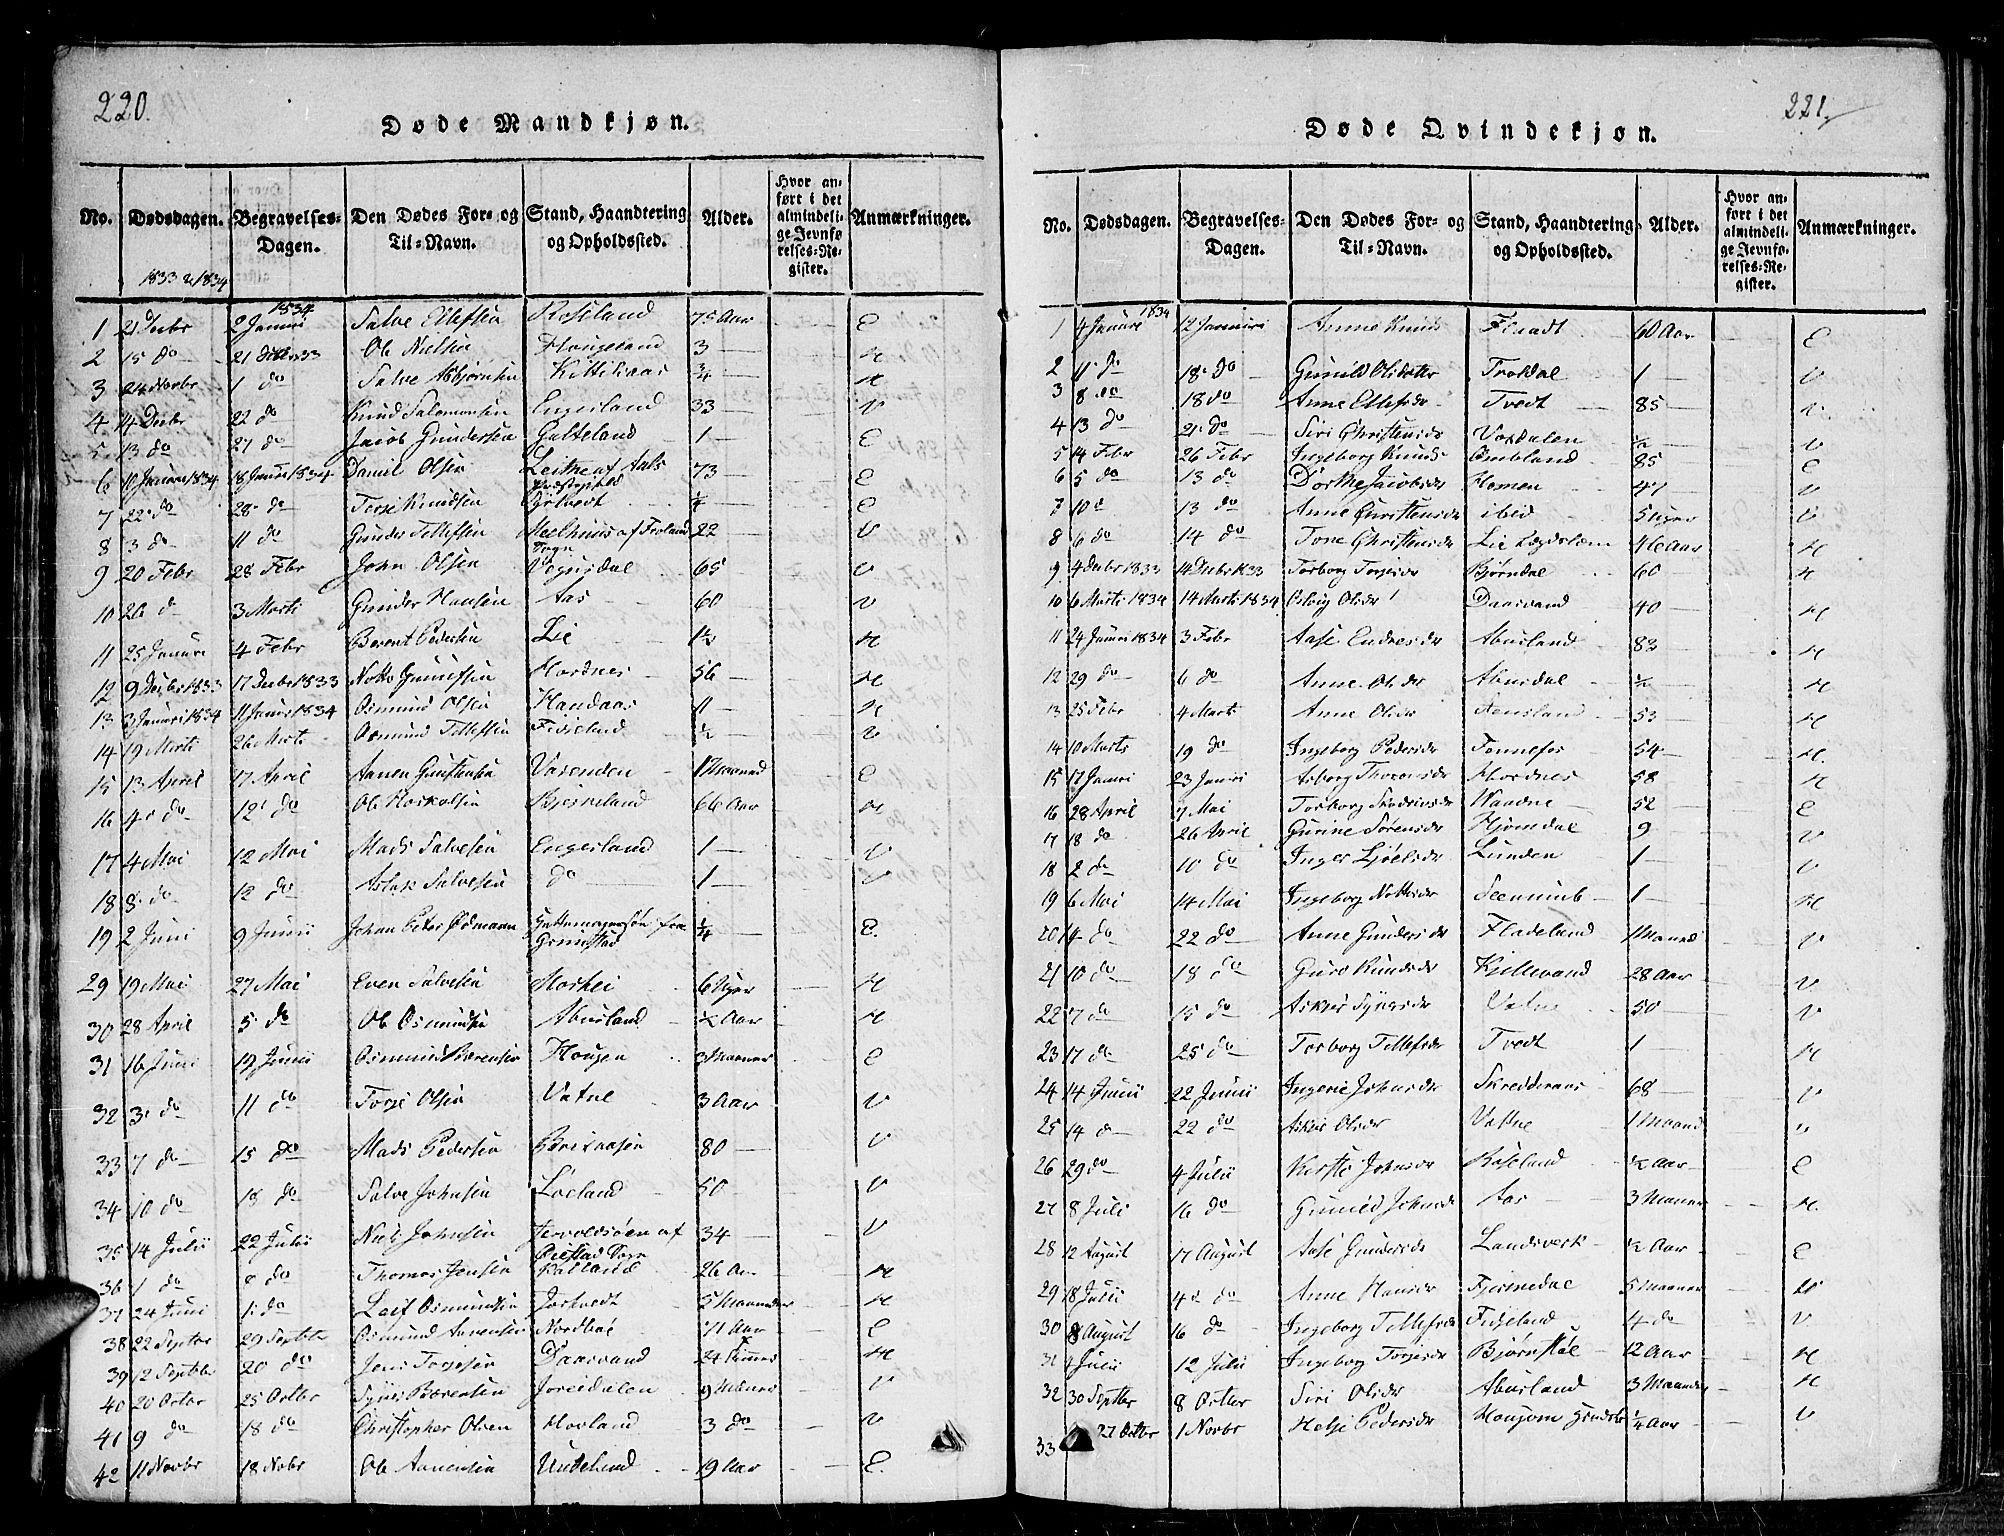 220.
Døde Mandkjøn.
No. Dødsdagen. Begravelses-Dagen. Den Dødes For- og Til-Navn. Stand, Haandtering og Opholdssted. Alder. Hvor anført i det almindelige Jevnførelses-Register. Anmærkninger.
1833 & 1834
1834
1 21 Decbr 2 Januri Salve Ellefsen Roseland 75 Aar E
2 15 do 21 Ole Nielsen Hougeland 3 — H
3 24 Novbr 1 do Salve Asbjørnsen Kittilsaas 3/4 — H
4 14 Decbr 22 do Knud Salomonsen Engesland 33 — V
5 13 do 27 do Jacob Gundersen Galteland 1 — E
6 10 Januri 1834 18 Januri 1834 Daniel Olsen af Aals Præstegield 73 — E
7 22 do 28 do Terje Knudsen Birkvedt 1/4 — E
8 3 do 11 do Gunder Tellefsen Meelhuus af Froland Sogn 22 — V
9 20 Febr 28 Febr John Olsen Vegusdal 65 — V
10 26 d 3 Marts Gunder Hansen Aas 60 — V
11 25 Januri 4 Febr Berent Pedersen Lie 1 1/2 H
12 9 Decbr 1833 17 Decbr 1833 Notto Gunufsen Hordnes 56 — H
13 3 Januri 1834 11 Januri 1834 Osmund Olsen Haudaas 11 — H
14 19 Marts 26 Marts Osmund Tellefsen Fidjeland 1/2 — V
15 13 April 17 April Aanen Gunstensen Vasenden 1 Maaned E
16 4 do 12 do Ole Horkolsen Bjerneland 66 Aar H
17 4 Mai 12 Mai Mads Salvesen Engesland 1 — V
18 8 do 12 do Aslak Salvesen do 1 — V
19 2 Juni 9 Junii Johan Peter Ødmann fra Grimstad 1/4 E.
29 19 Mai 27 Mai Even Salvesen Moshei 6 Uger H
30 28 April 5 do Ole Osmundsen Abusland 1/2 Aar H
31 16 Juni 19 Junii Osmund Børensen Hougen 3 Maaner E
32 3 do 11 do Terje Olsen Vatne 3 Aar V
33 7 do 15 do Mads Pedersen Bersaasen 80 — V
34 10 do 18 do Salve Johnsen Løeland 50 — V
35 14 Julii 22 Julii Niels Johnsen Jervoldsøen af Øiestad Sogn 34 — V
36 1 do 8 do Thomas Jensen Kalland 26 Aar H
37 24 Juni 1 do Leif Osmundsen Jortvedt 5 Maaneder H
38 22 Septbr 29 Septbr Osmund Aanensen Nordbøe 71 Aar E
39 12 Septbr 20 do Jens Terjesen Daasvand 24 Timer H
40 20 Octbr 25 Octbr Syvert Børensen Joreidalen 9 Maaner V
41 9 do 18 do Christopher Olsen Hovland 3 do V
42 11 Novbr 18 Nobr Ole Aanensen Uldelund 19 Aar E.
221.
Døde Qvindekjøn.
No. Dødsdagen. Begravelses-Dagen. Den Dødes For- og Til-Navn. Stand, Haandtering og Opholdssted. Alder. Hvor anført i det almindelige Jevnførelses-Register. Anmærkninger.
1834
1 4 Januri 12 Januri Anne Knuds Flaadt 60 Aar E
2 11 do 18 do Gunild Olsdatter Trosdal 1 — V
3 8 do 18 do Anne Ellefsdr Tvedt 85 — V
4 13 do 21 do Siri Christensdr Vosdalen 1/2 — V
5 14 Febr 26 Febr Ingeborg Knuds 85 — E
6 5 do 13 do Dorthe Jacobsdr Homen 47 — V
7 10 d 13 do Anne Christensdr ibid 5 Uger V
8 6 do 14 do Tone Christensdr Lie Lægdslem 46 Aar H
9 4 Decbr 1833 14 Decbr 1833 Torborg Torjesdr Bjørndal 60 H
10 6 Marts 1834 14 Marts 1834 Olsdr Daasvand 40 — H
11 24 Januri 1834 3 Febr Aase Endresdr Abusland 83 H
12 29 do 6 do Anne Olsdr Abusdal 1/2 H
13 25 Febr 4 Marts Anne Olsdr 53 H
14 10 Marts 19 do Ingeborg Pedersdr Fennefos 54 — H.
15 17 Januri 23 Januri Asborg Thoresdr Hordnes 58 H
16 28 April 7 Mai Torborg Waadne 52 E
17 18 do 26 April Gurine Sørensdr Hjømdal 9 V
18 2 do 10 do Inger Ljøelsdr Lunden 1 — V
19 6 Mai 14 Mai Ingeborg Nottosdr 1 — H
20 14 do 22 do Anne Gundersdr Fladeland 1 Maaned V
21 10 do 18 do Guro Knudsdr Kjellevand 28 Aar V
22 7 do 15 do Asber Vatne 50 — V
23 17 do 25 do Torborg Tellefsdr Tvedt 1 — H
24 14 Junii 22 Junii Ingerie Johnsdr Skredderaas 68 — V
25 14 d 22 do Askie Olsdr Vatne 1 Maaned "
26 29 do 4 Julii Kirsti Johnsdr Roseland 1/2 Aar E
27 8 Juli 16 do Gunild Johnsdr Aas 3 Maaner H.
28 12 August 17 August Aase Gundersdr Landsverk 1/2 Aar E
29 18 Julii 4 do Anne Hansdr Fjermedal 5 Maaner H
30 8 August 16 do Ingeborg Tellefsdr Fidjeland 4 do V
31 4 Julii 12 Julii Ingeborg Torjesdr Bjørnstøl 12 Aar H
32 30 Septbr 8 Octbr Siri Olsdr Abusland 3 Maaneder H
33 27 Octbr 1 Novbr Helje Pedersdr 1/4 Aar V